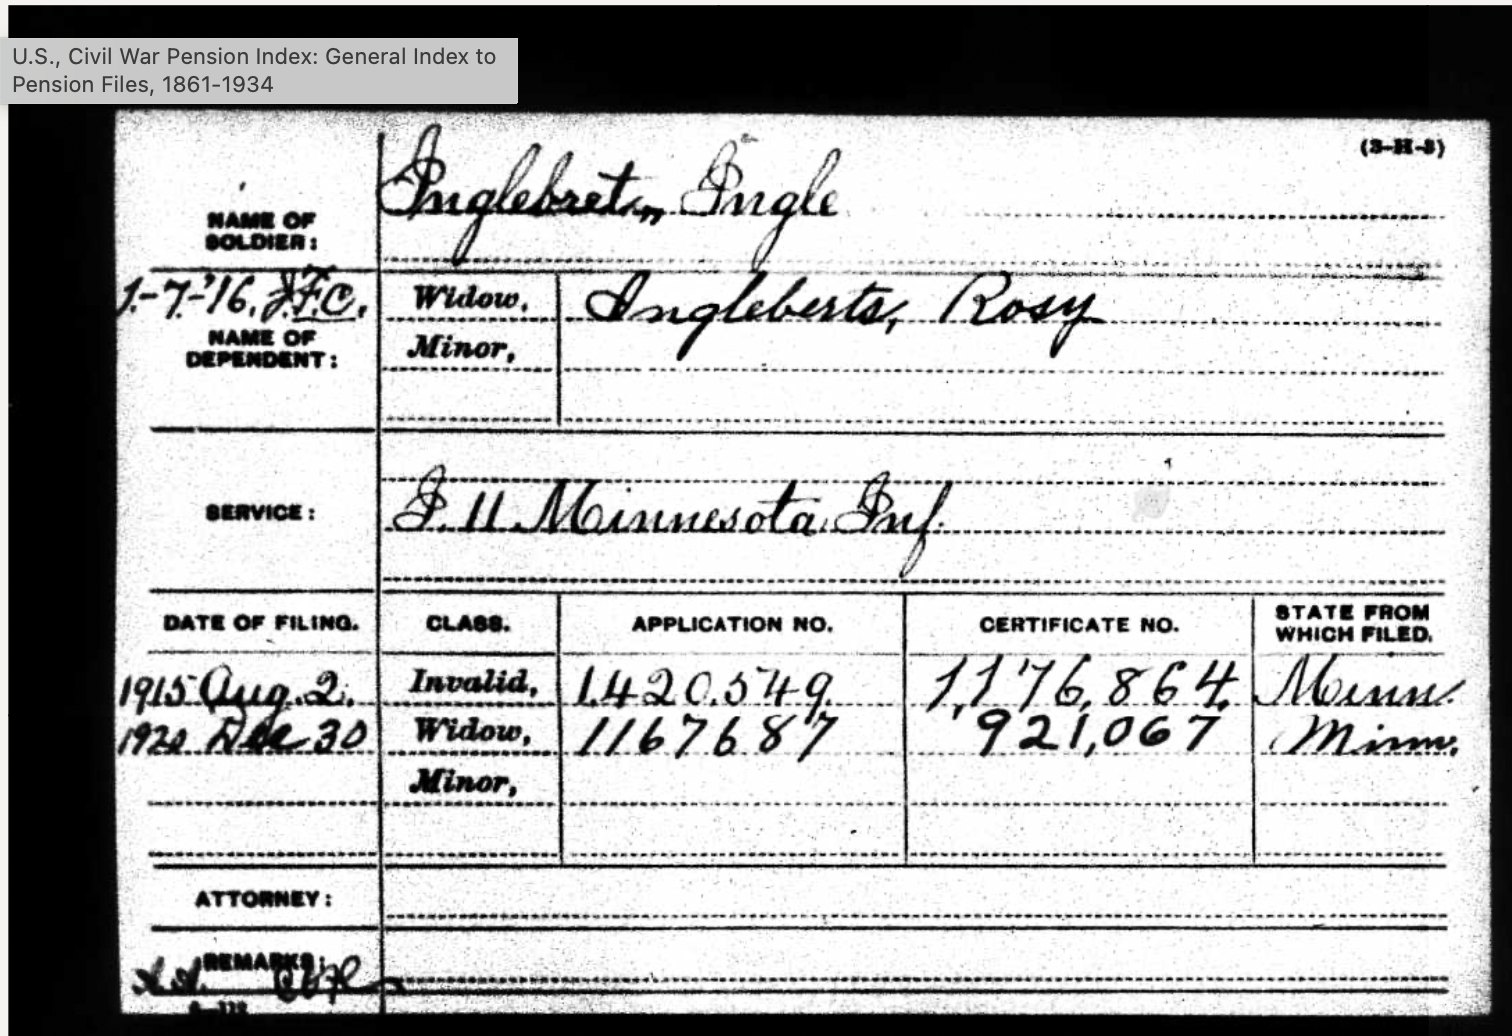 U.S., Civil War Pension Index: General Index to
Pension Files, 1861-1934
(3-H-3)
NAME OF
SOLDIER:
Inglebretsn, Ingle
1-7-'16. J.F.C.
NAME OF
DEPENDENT:
Widow, Ingleberts, Rosy
Minor,
SERVICE: I. 11 Minnesota Inf.
DATE OF FILING. CLASS. APPLICATION NO. CERTIFICATE NO. STATE FROM
WHICH FILED.
1915 Aug. 2. Invalid, 1,420,549. 1,176,864. Minn.
1920 Dec 30 Widow, 1167687 921,067 Minn.
Minor,
ATTORNEY:
REMARKS: